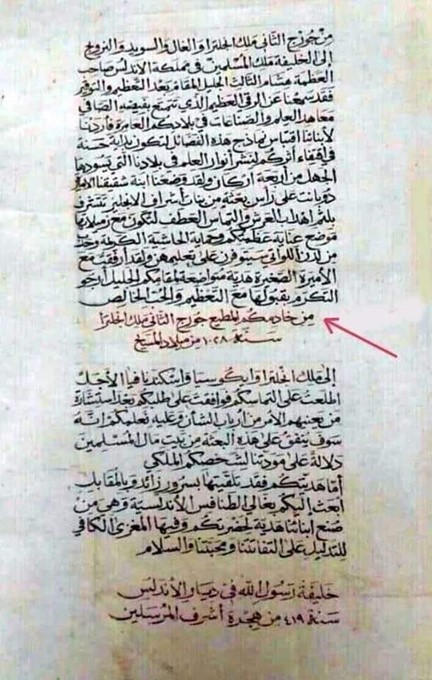 من جورج الثاني ملك انجلترا والغال والسويد والنرويج
إلى الخليفة ملك المسلمين في مملكة الأندلس صاحب
العظمة هشام الثالث الجليل المقام بعد التعظيم والتوقير
فقد سمعنا عن الرقي العظيم الذي تتمتع بفيضه الصافي
معاهد العلم والصناعات في بلادكم العامرة فأردنا
لأبنائنا اقتباس نماذج هذه الفضائل لتكون بداية حسنة
في اقتفاء أثركم لنشر أنوار العلم في بلادنا التي يسودها
الجهل من أربعة أركان ولقد وضعنا ابنة شقيقنا الأميرة
دوبانت على رأس بعثة من بنات أشراف الإنجليز تتشرف
بلثم أهداب العرش والتماس العطف لتكون مع زميلاتها
موضع عناية عظمتكم وحماية الحاشية الكريمة وحدب
من لدن اللواتي سيتوفرن على تعليمهن ولقد أرفقت مع
الأميرة الصغيرة هدية متواضعة لمقامكم الجليل أرجو
التكرم بقبولها مع التعظيم والحب الخالص
من خادمكم المطيع جورج الثاني ملك انجلترا
سنة ١٠٢٨ من ميلاد المسيح
إلى ملك انجلترا وايكوسيا واسكندنافيا الأجل
اطلعت على التماسكم فوافقت على طلبكم بعد استشارة
من يعنيهم الأمر من أرباب الشأن وعليه نعلمكم أنه
سوف ينفق على هذه البعثة من بيت مال المسلمين
دلالة على مودتنا لشخصكم الملكي
أما هديتكم فقد تلقيتها بسرور زائد وبالمقابل
أبعث إليكم بغالي الطنافس الأندلسية وهي من
صنع أبنائنا هدية لحضرتكم وفيها المغزى الكافي
للتدليل على التفاتتنا ومحبتنا والسلام
خليفة رسول الله في ديار الأندلس
سنة ٤١٩ من هجرة أشرف المرسلين